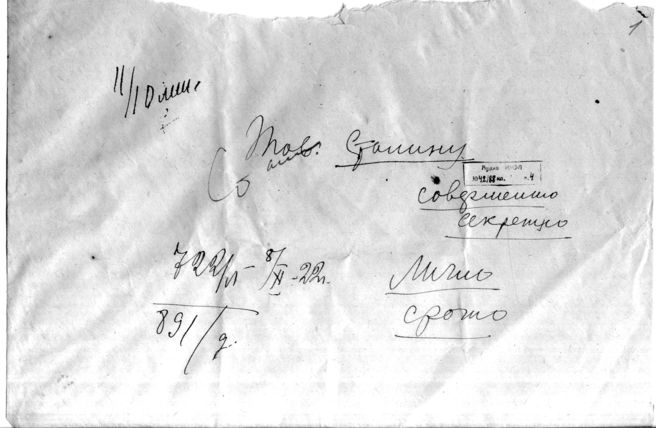 1
11/10 мин.
Тов. Сталину
Со
совершенно
секретно
722/л - 8/XI - 22г.
Лично
891/д.
срочно